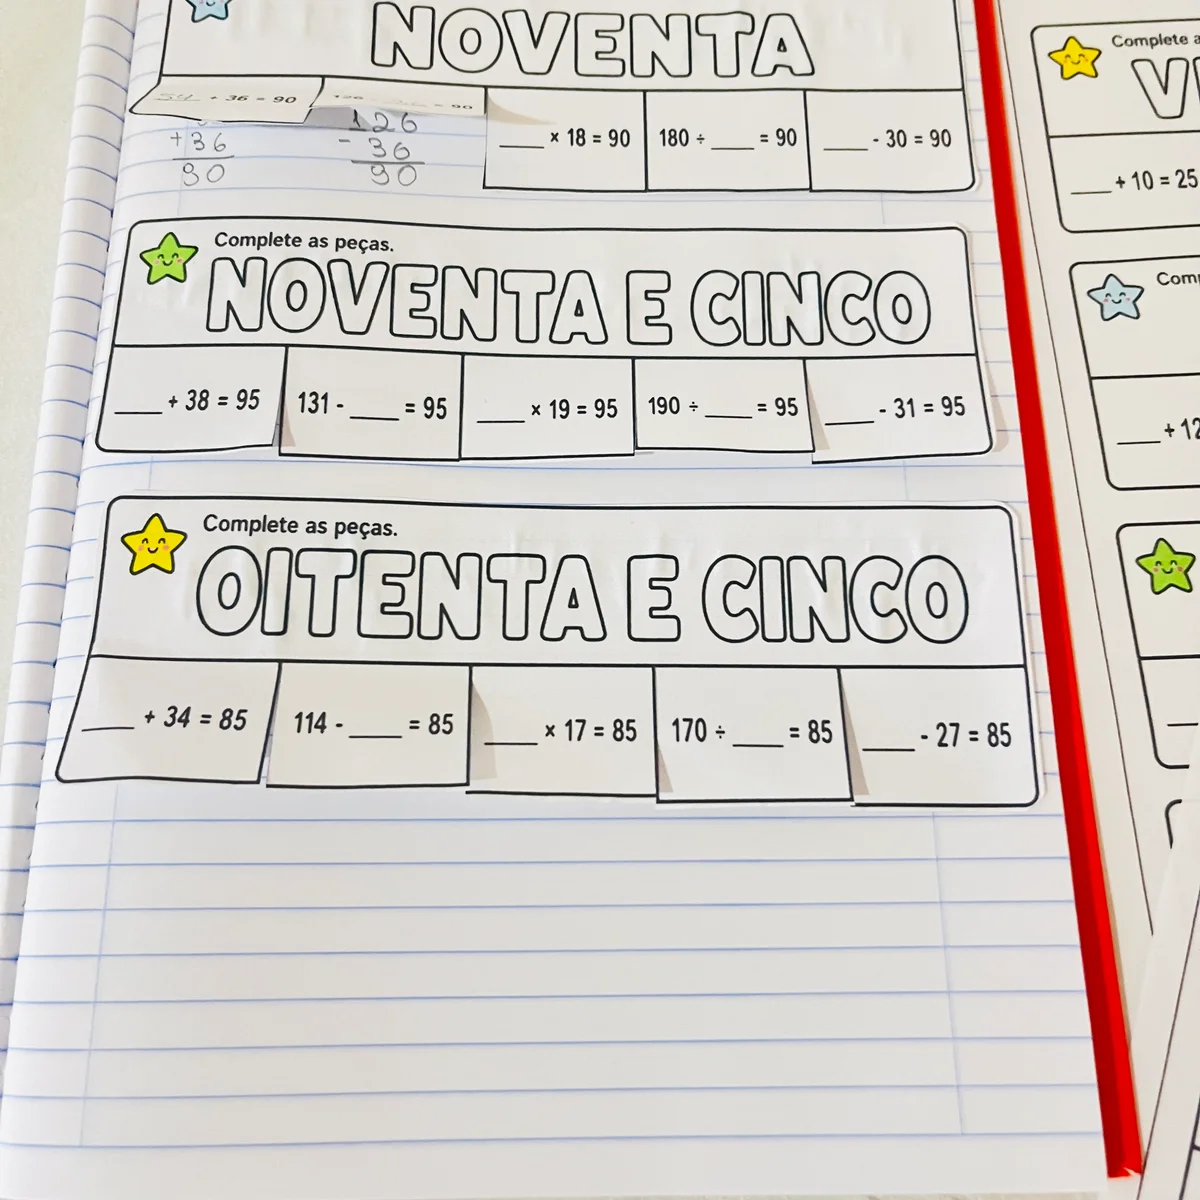 NOVENTA
54 + 36 = 90
+36
90
126
- 36
90
___ × 18 = 90
180 ÷ ___ = 90
___ - 30 = 90
Complete as peças.
NOVENTA E CINCO
___ + 38 = 95
131 - ___ = 95
___ × 19 = 95
190 ÷ ___ = 95
___ - 31 = 95
Complete as peças.
OITENTA E CINCO
___ + 34 = 85
114 - ___ = 85
___ × 17 = 85
170 ÷ ___ = 85
___ - 27 = 85
Complete
___ + 10 = 25
___ + 12